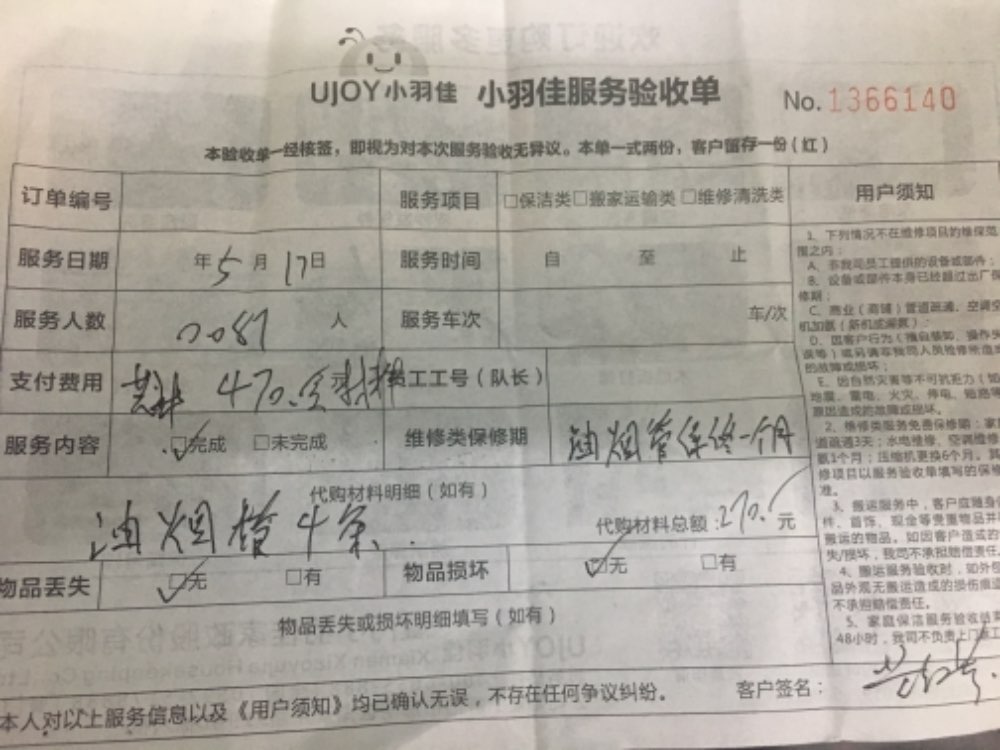 UJOY小羽佳 小羽佳服务验收单 No.1366140
本验收单一经核签，即视为对本次服务验收无异议。本单一式两份，客户留存一份（红）
订单编号 服务项目 □保洁类□搬家运输类 □维修清洗类 用户须知
服务日期 年5月17日 服务时间 自 至 止
服务人数 0087 人 服务车次 车/次
支付费用 470.含材料 员工工号（队长）
服务内容 □完成 □未完成 维修类保修期 油烟管保修一个月
代购材料明细（如有）
油烟管4条. 代购材料总额：270.元
物品丢失 □无 □有 物品损坏 □无 □有
物品丢失或损坏明细填写（如有）
本人对以上服务信息以及《用户须知》均已确认无误，不存在任何争议纠纷。 客户签名：
1、下列情况不在维修项目的维保范
围之内：
A、非我司员工提供的设备或部件；
B、设备或部件本身已经超过出厂保
修期；
C、商业（商铺）管道疏通、空调空
机加氨（新机或漏氨）；
D、因客户行为（擅自装卸、操作失
误等）或另请非我司人员维修所造成
的故障或损坏；
E、因自然灾害等不可抗拒力（如
地震、雷电、火灾、停电、短路等
原因造成的故障或损坏。
2、维修类服务免费保修期：家庭
道疏通3天；水电维修、空调维修
氨1个月；压缩机更换6个月。其
修项目以服务验收单填写的保修
准。
3、搬运服务中，客户应随身
件、首饰、现金等贵重物品并
搬运的物品。如因客户造成的
失/损坏，我司不承担赔偿责任。
4、搬运服务验收时，如外包
品外观无搬运造成的损伤痕迹
不承担赔偿责任。
5、家庭保洁服务验收结
48小时，我司不负责上门返工